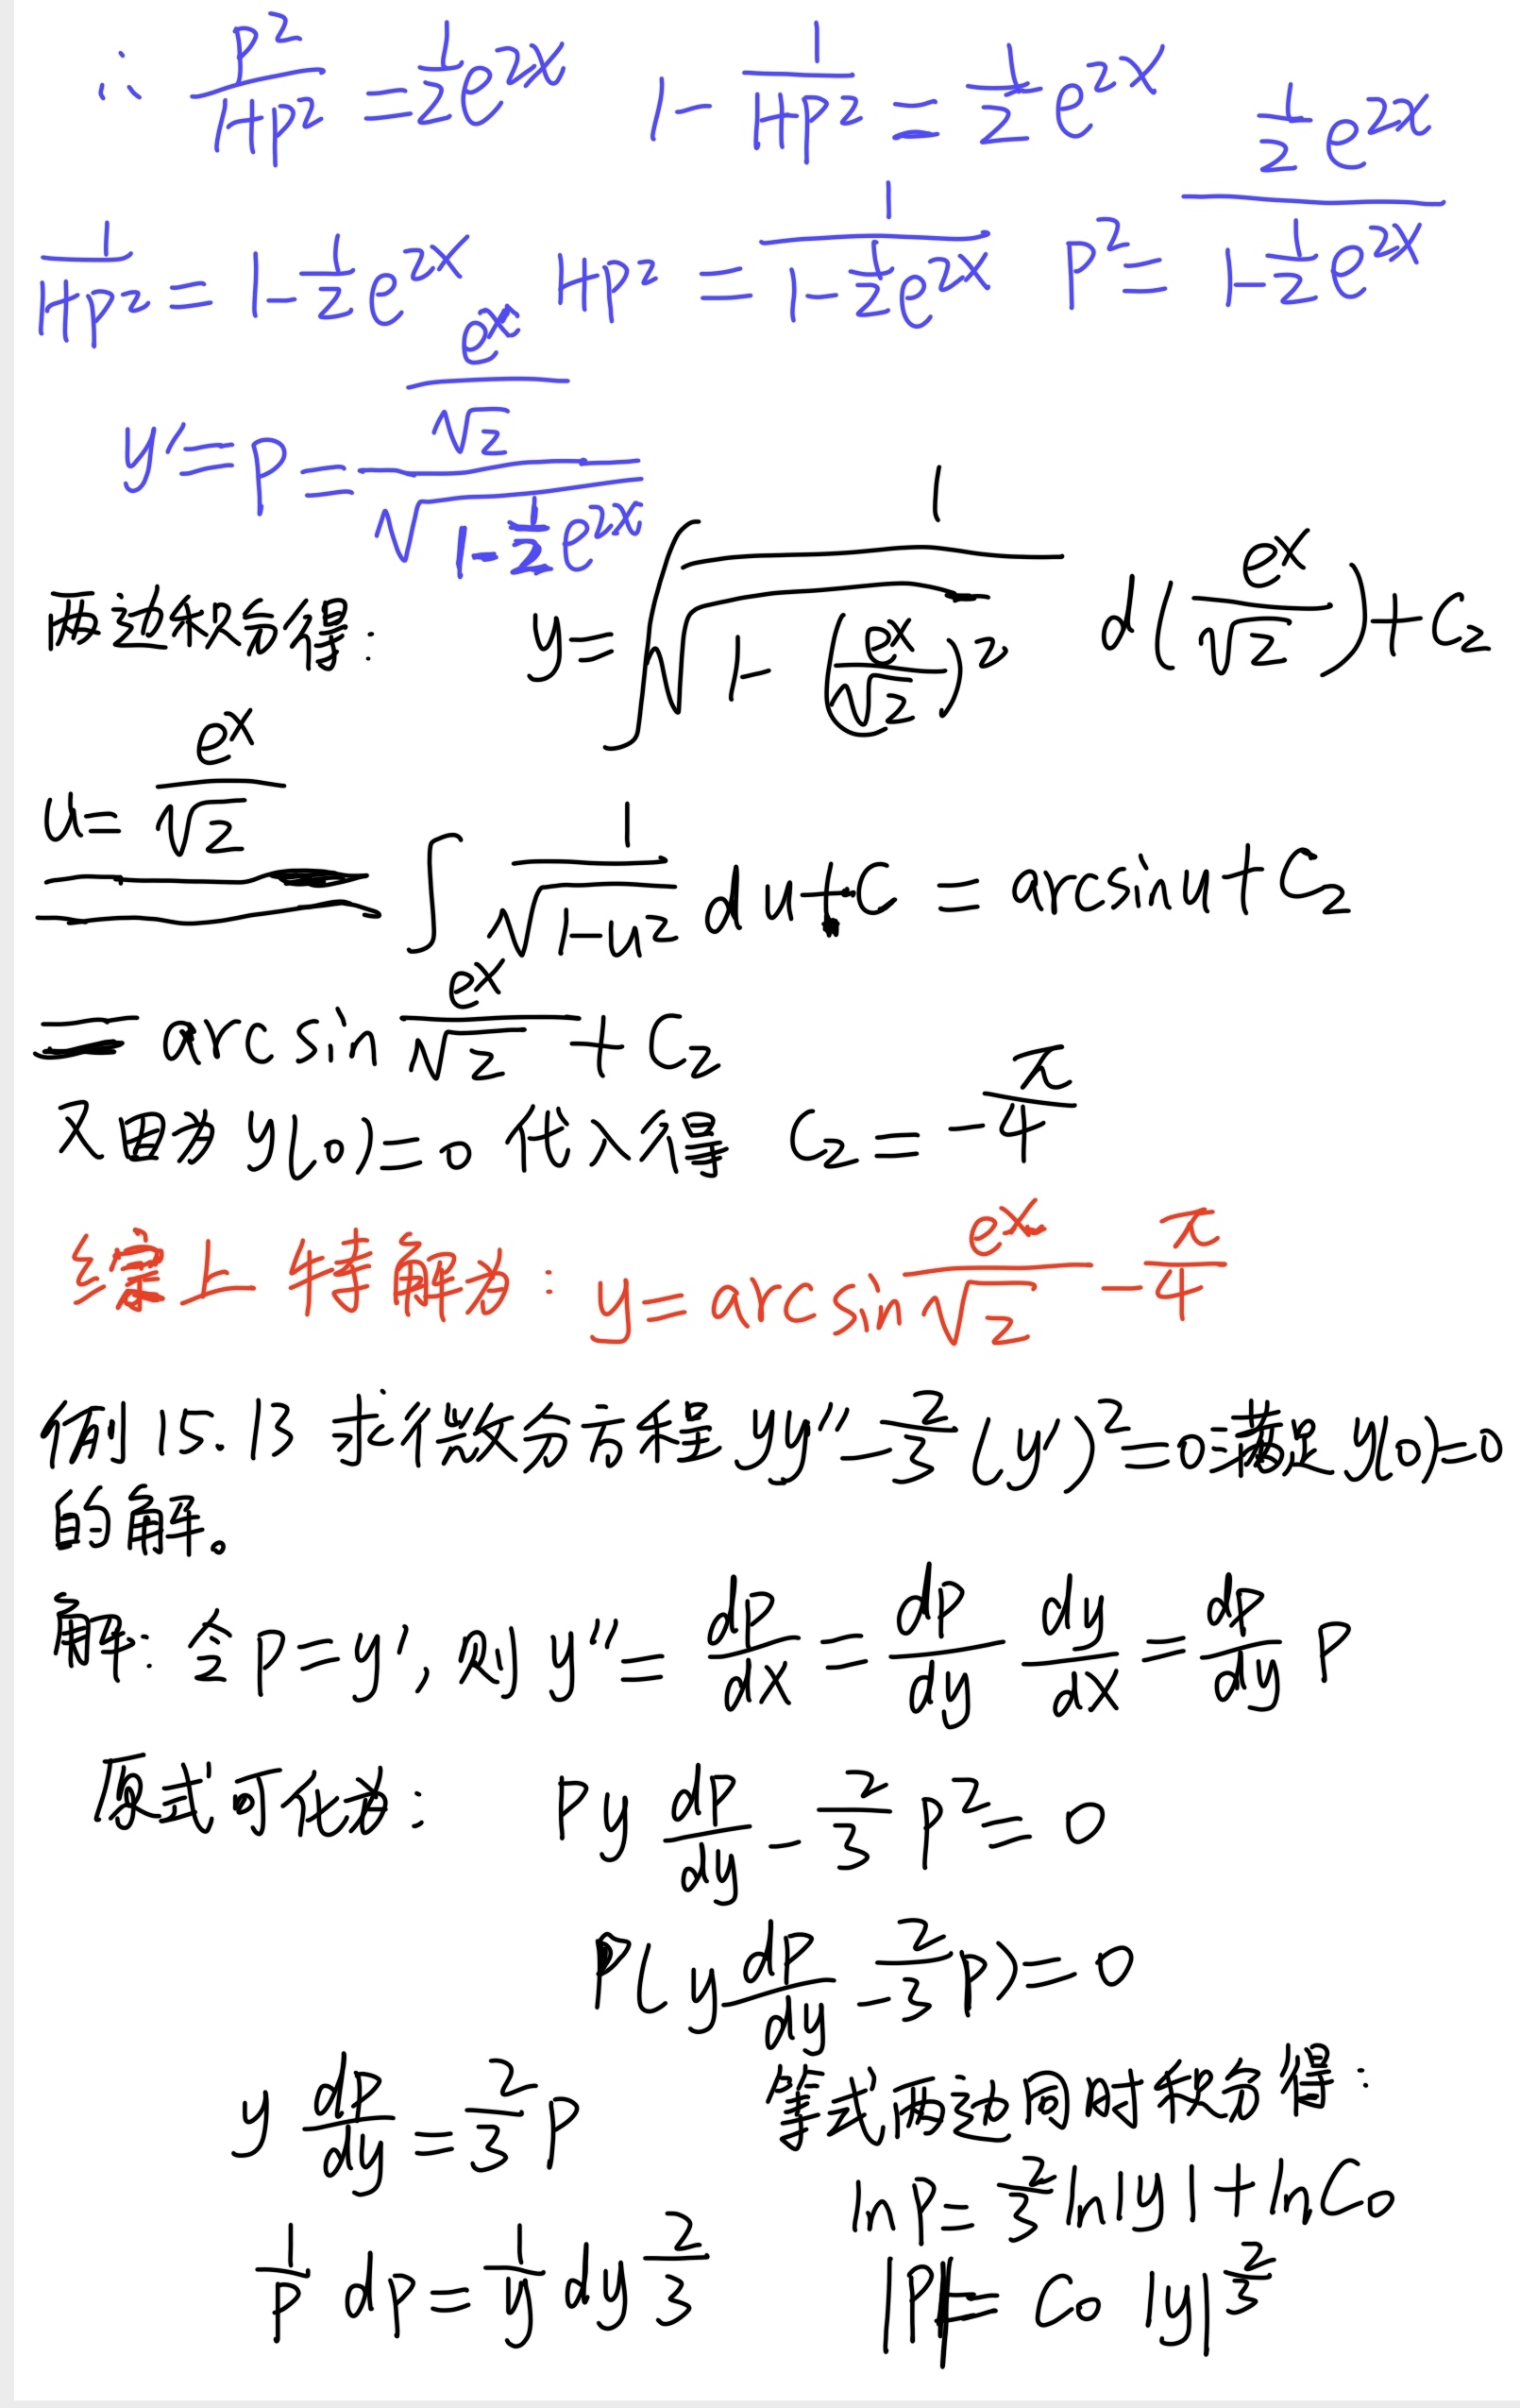 ∴ p²/(1+p²) = 1/2 e^(2x)   1 - 1/(1+p²) = 1/2 e^(2x)
1/(1+p²) = 1 - 1/2 e^(2x)   1+p² = 1/(1 - 1/2 e^(2x))   p² = (1/2 e^(2x))/(1 - 1/2 e^(2x))
y' = p = (e^x/√2)/√(1 - 1/2 e^(2x))
两边积分得: y = ∫ 1/√(1 - (e^x/√2)²) d(e^x/√2) + C₂
u = e^x/√2
∫ 1/√(1-u²) du + C = arcsin u + C₂
= arcsin e^x/√2 + C₂
又因为 y(0)=0 代入得 C₂ = -π/4
综上特解为: y = arcsin e^x/√2 - π/4
例15.13 求微分方程 yy'' - 2/3 (y')² = 0 满足 y(0)=0
的解。
解: 令 p = y', 则 y'' = dp/dx = dp/dy dy/dx = dp/dy p
原式可化为: py dp/dy - 2/3 p² = 0
p(y dp/dy - 2/3 p) = 0
y dp/dy = 2/3 p   等式两边同时积分得:
lnp = 2/3 ln|y| + lnC₀
1/p dp = 1/y dy 2/3   |p| = C₀ |y|^(2/3)